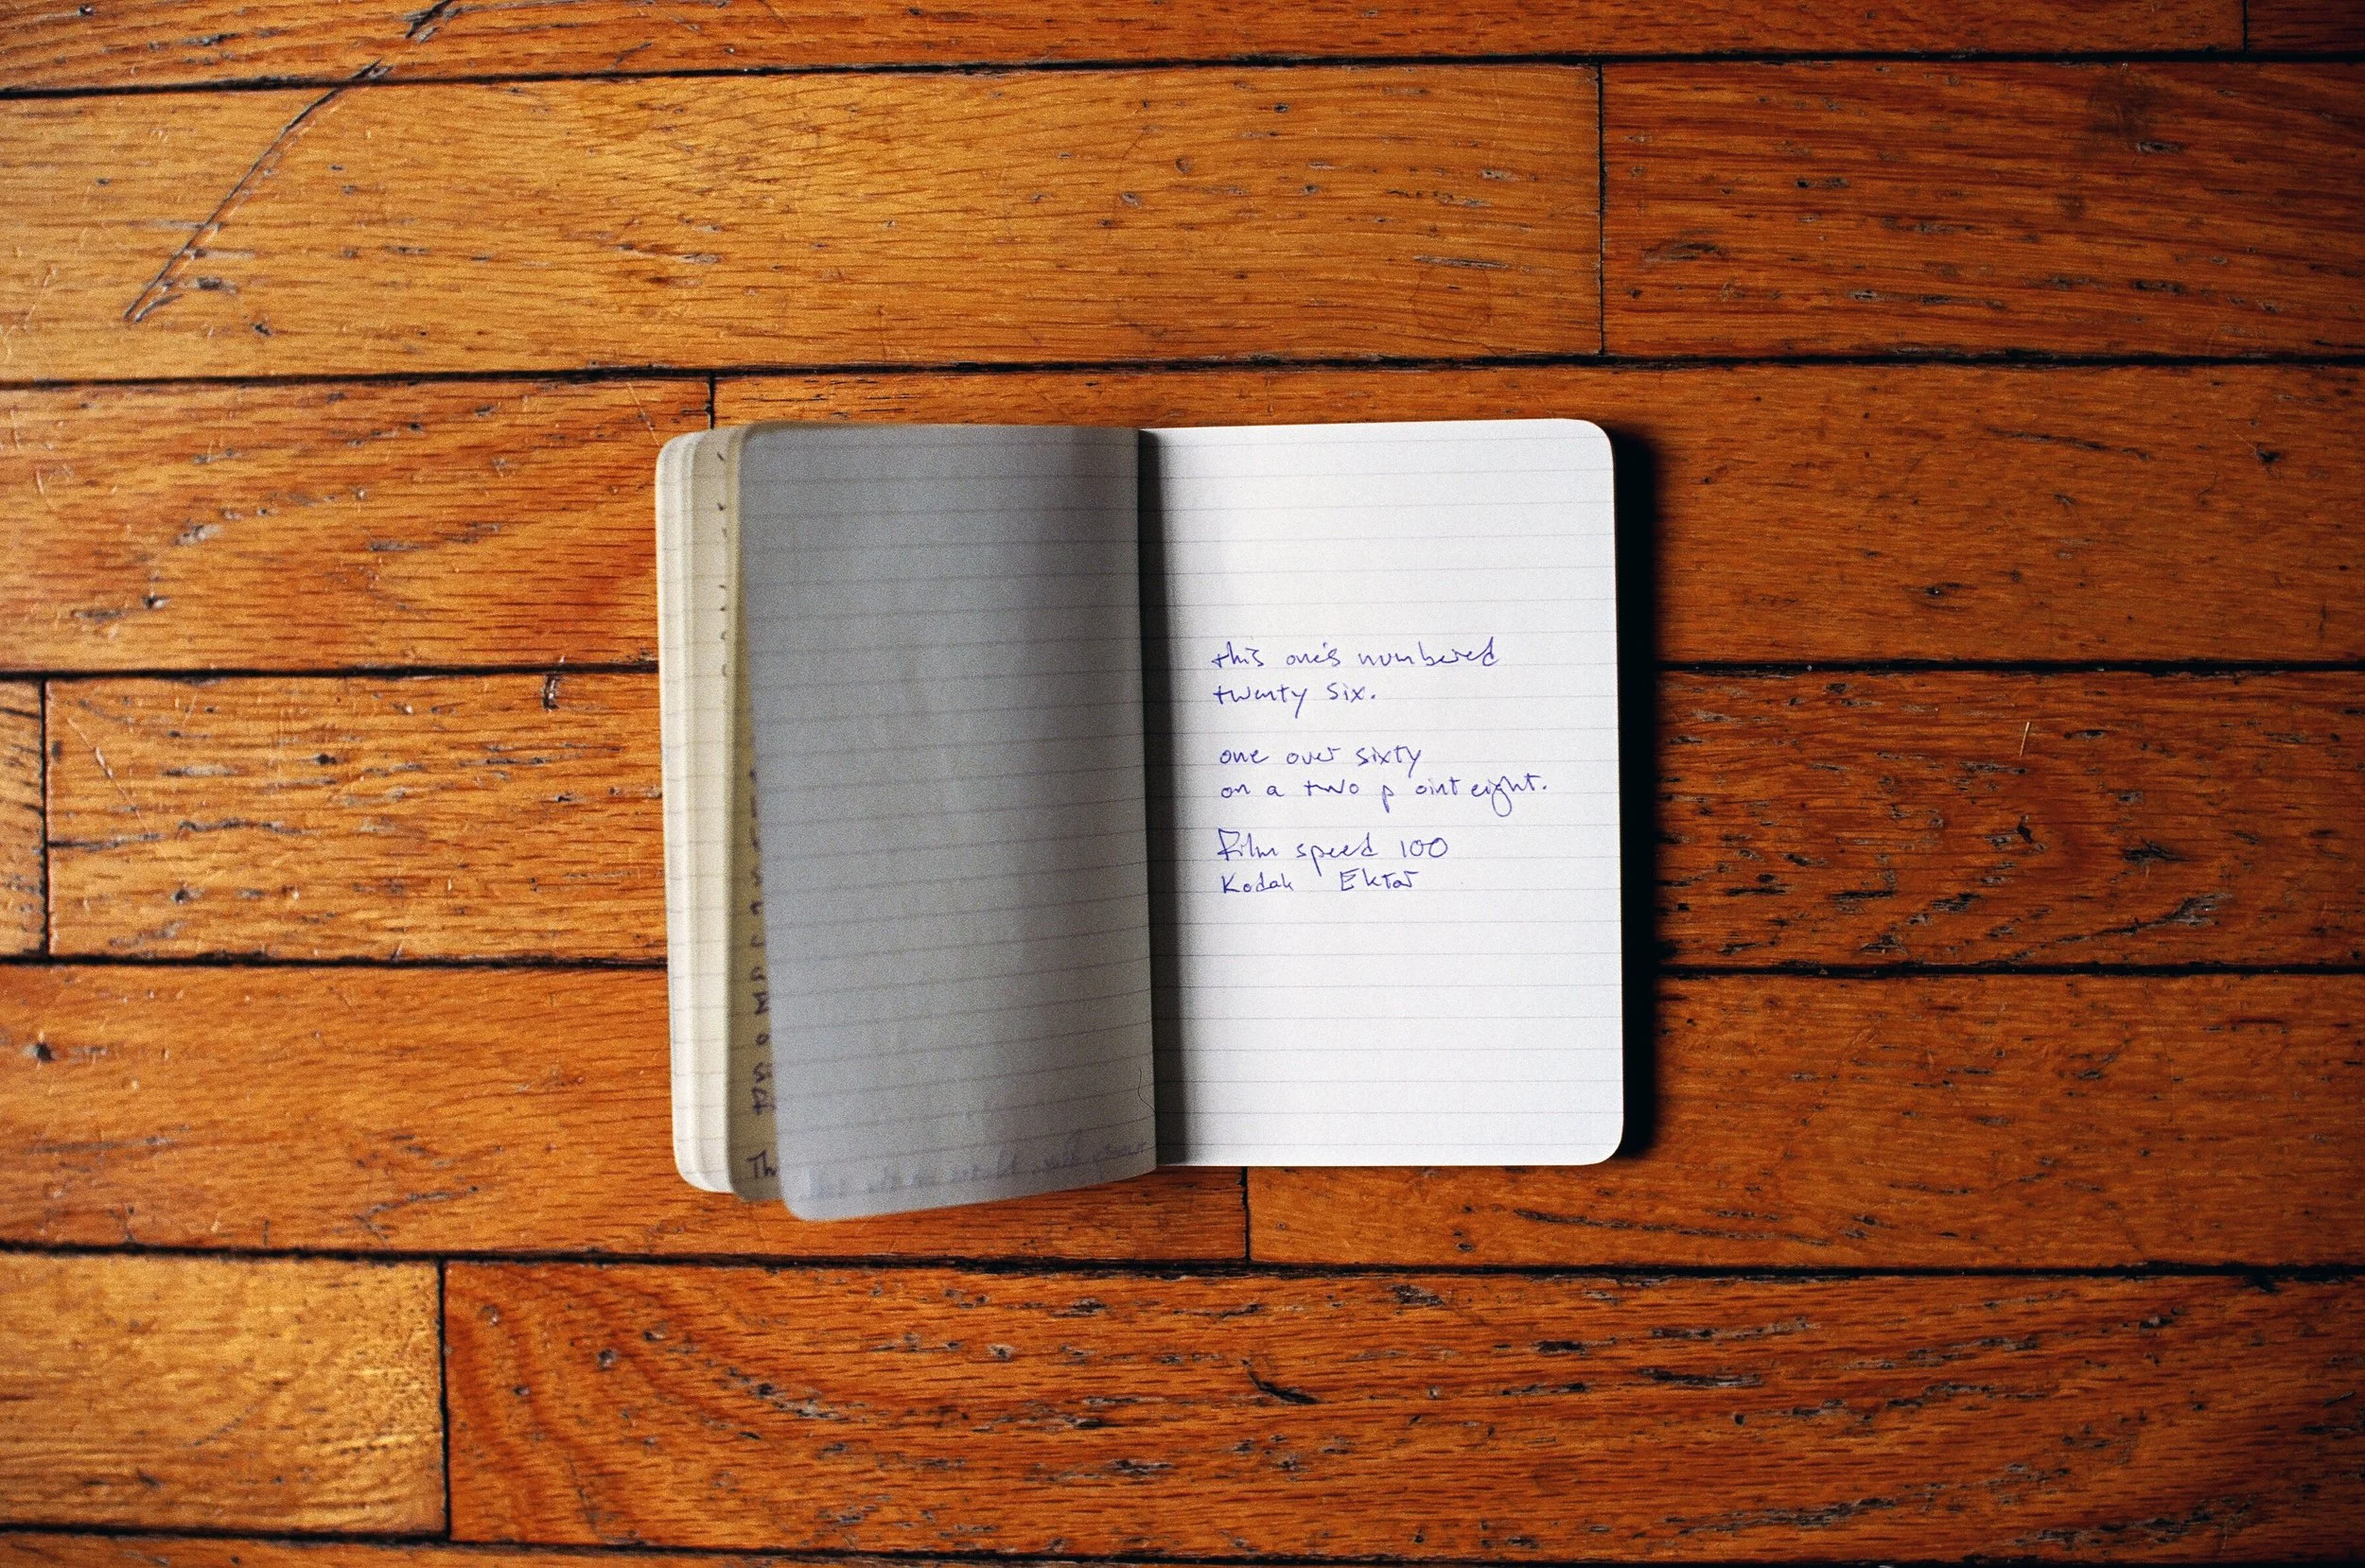 this one's numbered
twenty six.
one over sixty
on a two p oint eight.
Film speed 100
Kodak Ektar
Th